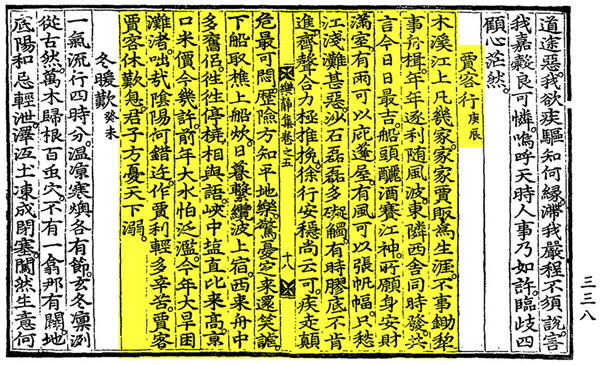 道途惡。我欲疾驅知何緣。滯我嚴程不須說。言
我嘉穀良可憐。嗚呼天時人事乃如許。臨歧四
顧心茫然。
賈客行 庚辰
木溪江上凡幾家。家家賈販爲生涯。不事鋤犂
事舟楫。年年逐利随風波。東隣西舍同時發。共
言今日日最吉。船頭釃酒賽江神。所願身安財
滿室。有雨可以庇蓬屋。有風可以張帆幅。只愁
江淺灘甚惡。沙石磊磊多礙觸。有時膠底不肯
進。齊聲合力極推挽。徐行安穩尚云可。疾走顛
樂靜集卷之五 十八
危最可悶。歷險方知平地樂。驚憂之來還笑謔。
下船取樵上船炊。日暮繫纜波上宿。西來舟中
多舊侶。徃徃停橈相與語。峽中塩直比來高。京
口米價今幾許。前年大水怕泛濫。今年大旱困
灘渚。咄哉陰陽何錯迕。作賈利輕多辛苦。賈客
賈客休歎息。君子方憂天下溺。
冬暖歎 癸未
一氣流行四時分。温凉寒燠各有節。玄冬凜冽
從古然。萬木歸根百虫穴。不有一翕那有闢。地
底陽和忌輕泄。澤冱土凍成閉塞。闖然生意何
三三八